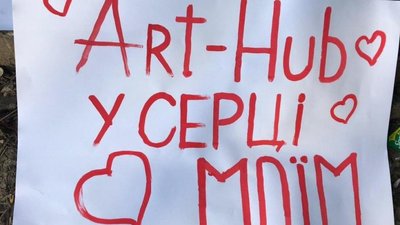 Art-Hub
У СЕРЦІ
МОЇМ